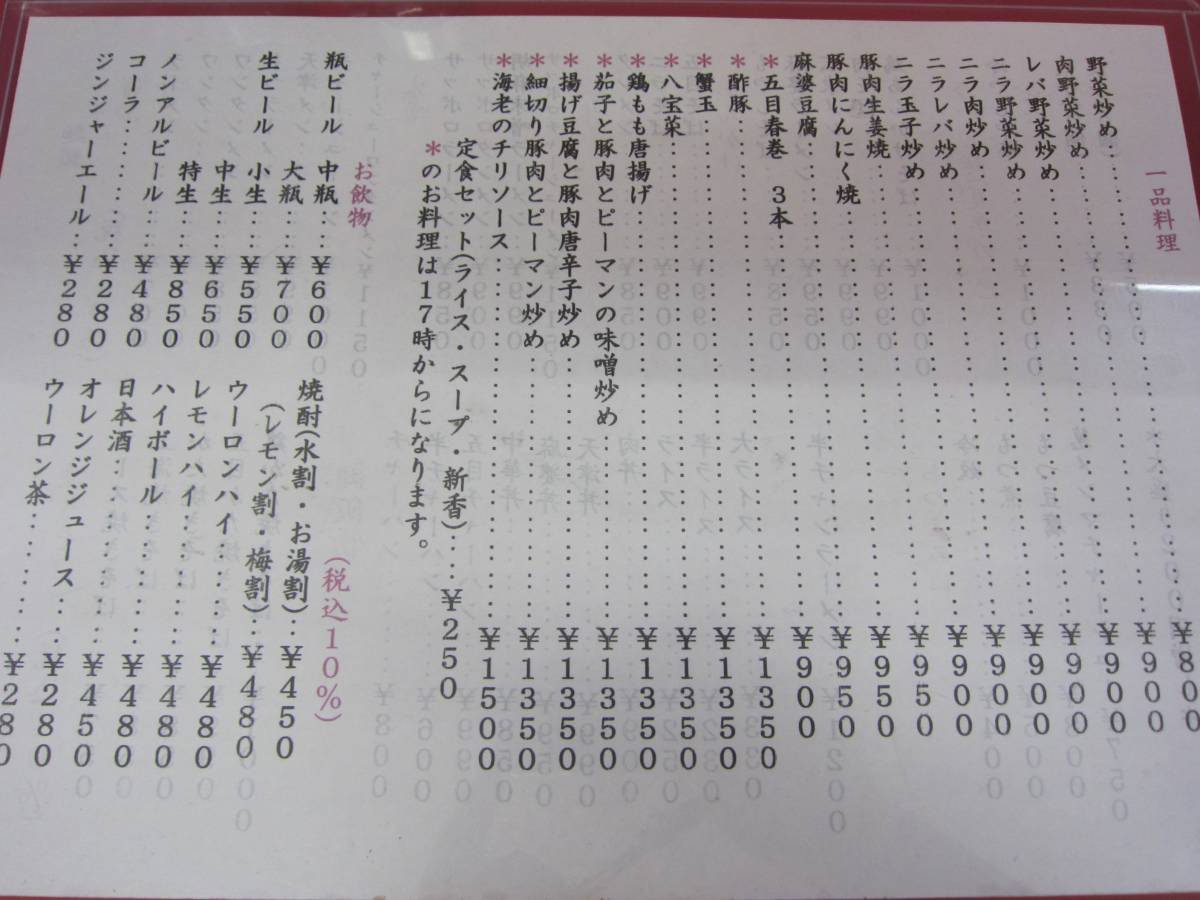 一品料理
野菜炒め‥‥‥¥800
肉野菜炒め‥‥‥¥900
レバ野菜炒め‥‥‥¥900
ニラ野菜炒め‥‥‥¥900
ニラ肉炒め‥‥‥¥900
ニラレバ炒め‥‥‥¥900
ニラ玉子炒め‥‥‥¥900
豚肉生姜焼‥‥‥¥950
豚肉にんにく焼‥‥‥¥950
麻婆豆腐‥‥‥¥950
*五目春巻 3本‥‥‥¥900
*酢豚‥‥‥¥1350
*蟹玉‥‥‥¥1350
*八宝菜‥‥‥¥1350
*鶏もも唐揚げ‥‥‥¥1350
*茄子と豚肉とピーマンの味噌炒め‥‥‥¥1350
*揚げ豆腐と豚肉唐辛子炒め‥‥‥¥1350
*細切り豚肉とピーマン炒め‥‥‥¥1350
*海老のチリソース‥‥‥¥1500
定食セット(ライス・スープ・新香)‥‥¥250
*のお料理は17時からになります。
お飲物
瓶ビール 中瓶‥¥600
大瓶‥¥700
生ビール 小生‥¥550
中生‥¥650
特生‥¥850
ノンアルビール‥¥480
コーラ‥‥‥¥280
ジンジャーエール‥¥280
(税込10%)
焼酎(水割・お湯割)‥¥450
(レモン割・梅割)‥¥480
ウーロンハイ‥‥¥480
レモンハイ‥‥‥¥480
ハイボール‥‥‥¥480
日本酒‥‥‥¥450
オレンジジュース‥¥280
ウーロン茶‥‥‥¥280